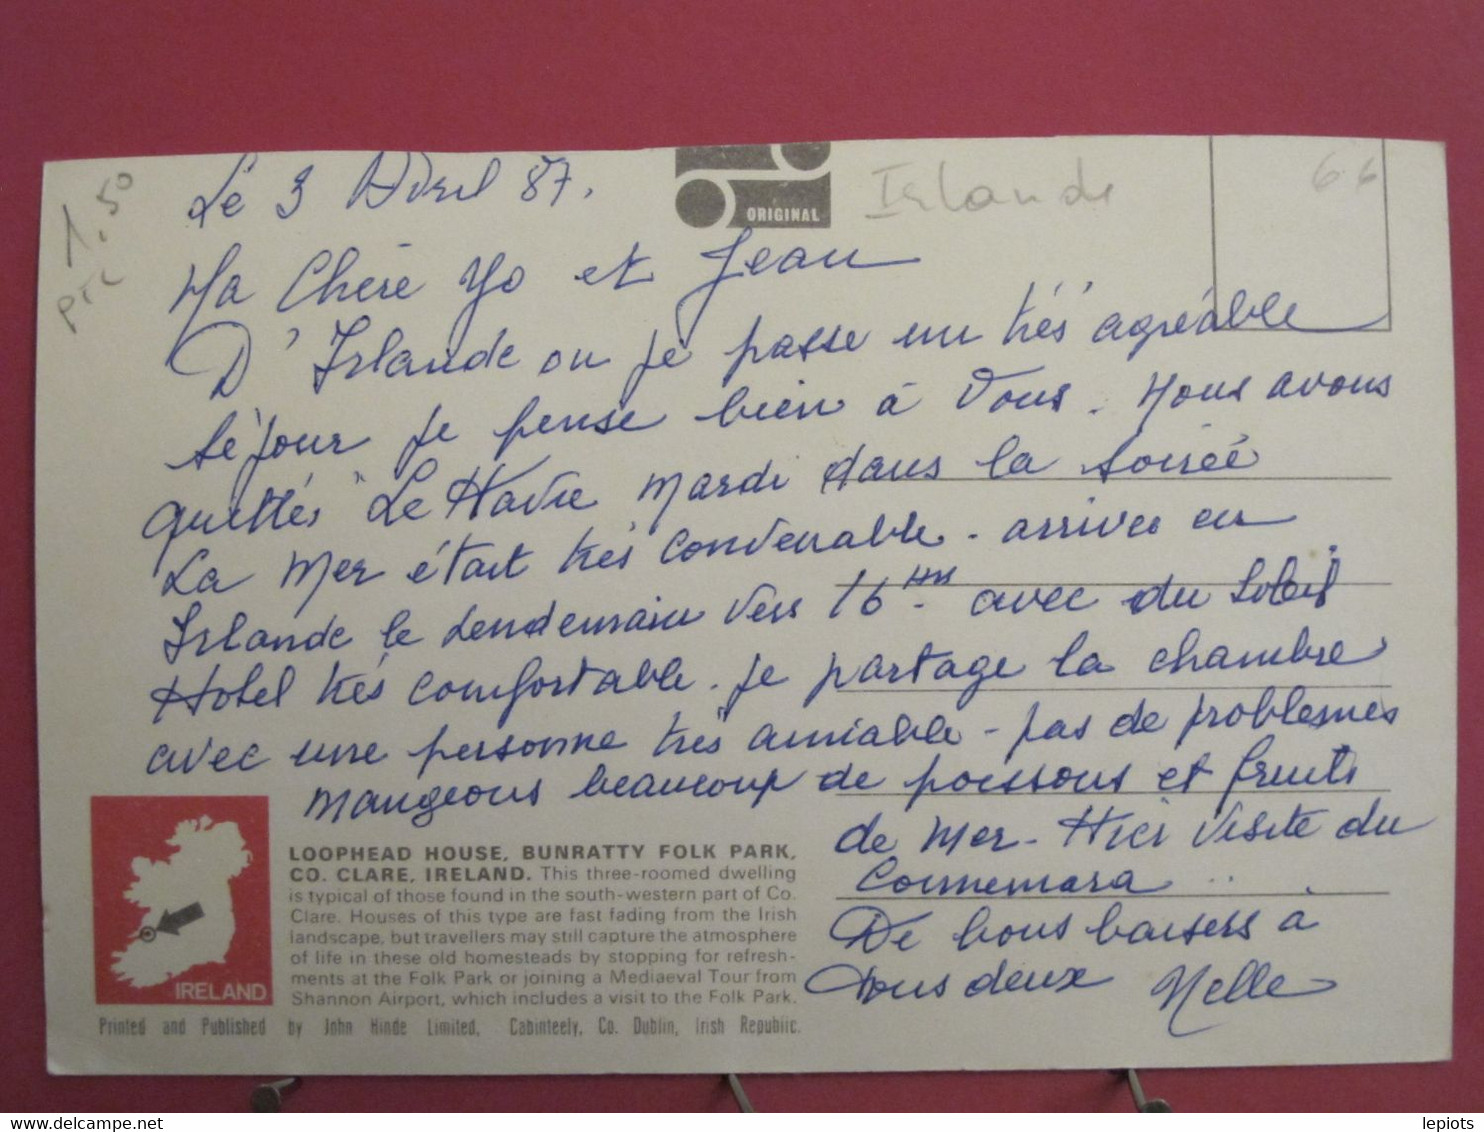 1.50
Le 3 Avril 87.
ORIGINAL
Irlande
6.6
Ma Chère Yo et Jean
D'Irlande ou je passe un très agréable
séjour je pense bien à Vous. Nous avons
quittés Le Havre mardi dans la soirée
La Mer était très convenable. arrivés en
Irlande le lendemain vers 16 Hrs avec du Soleil
Hotel très comfortable. Je partage la chambre
avec une personne très amiable - pas de problemes
Mangeons beaucoup de poissons et fruits
de Mer. Hier Visite du
Connemara ..
De bons baisers à
tous deux Nelle
LOOPHEAD HOUSE, BUNRATTY FOLK PARK,
CO. CLARE, IRELAND. This three-roomed dwelling
is typical of those found in the south-western part of Co.
Clare. Houses of this type are fast fading from the Irish
landscape, but travellers may still capture the atmosphere
of life in these old homesteads by stopping for refresh-
ments at the Folk Park or joining a Mediaeval Tour from
Shannon Airport, which includes a visit to the Folk Park.
IRELAND
Printed and Published by John Hinde Limited, Cabinteely, Co. Dublin, Irish Republic.
lepiots